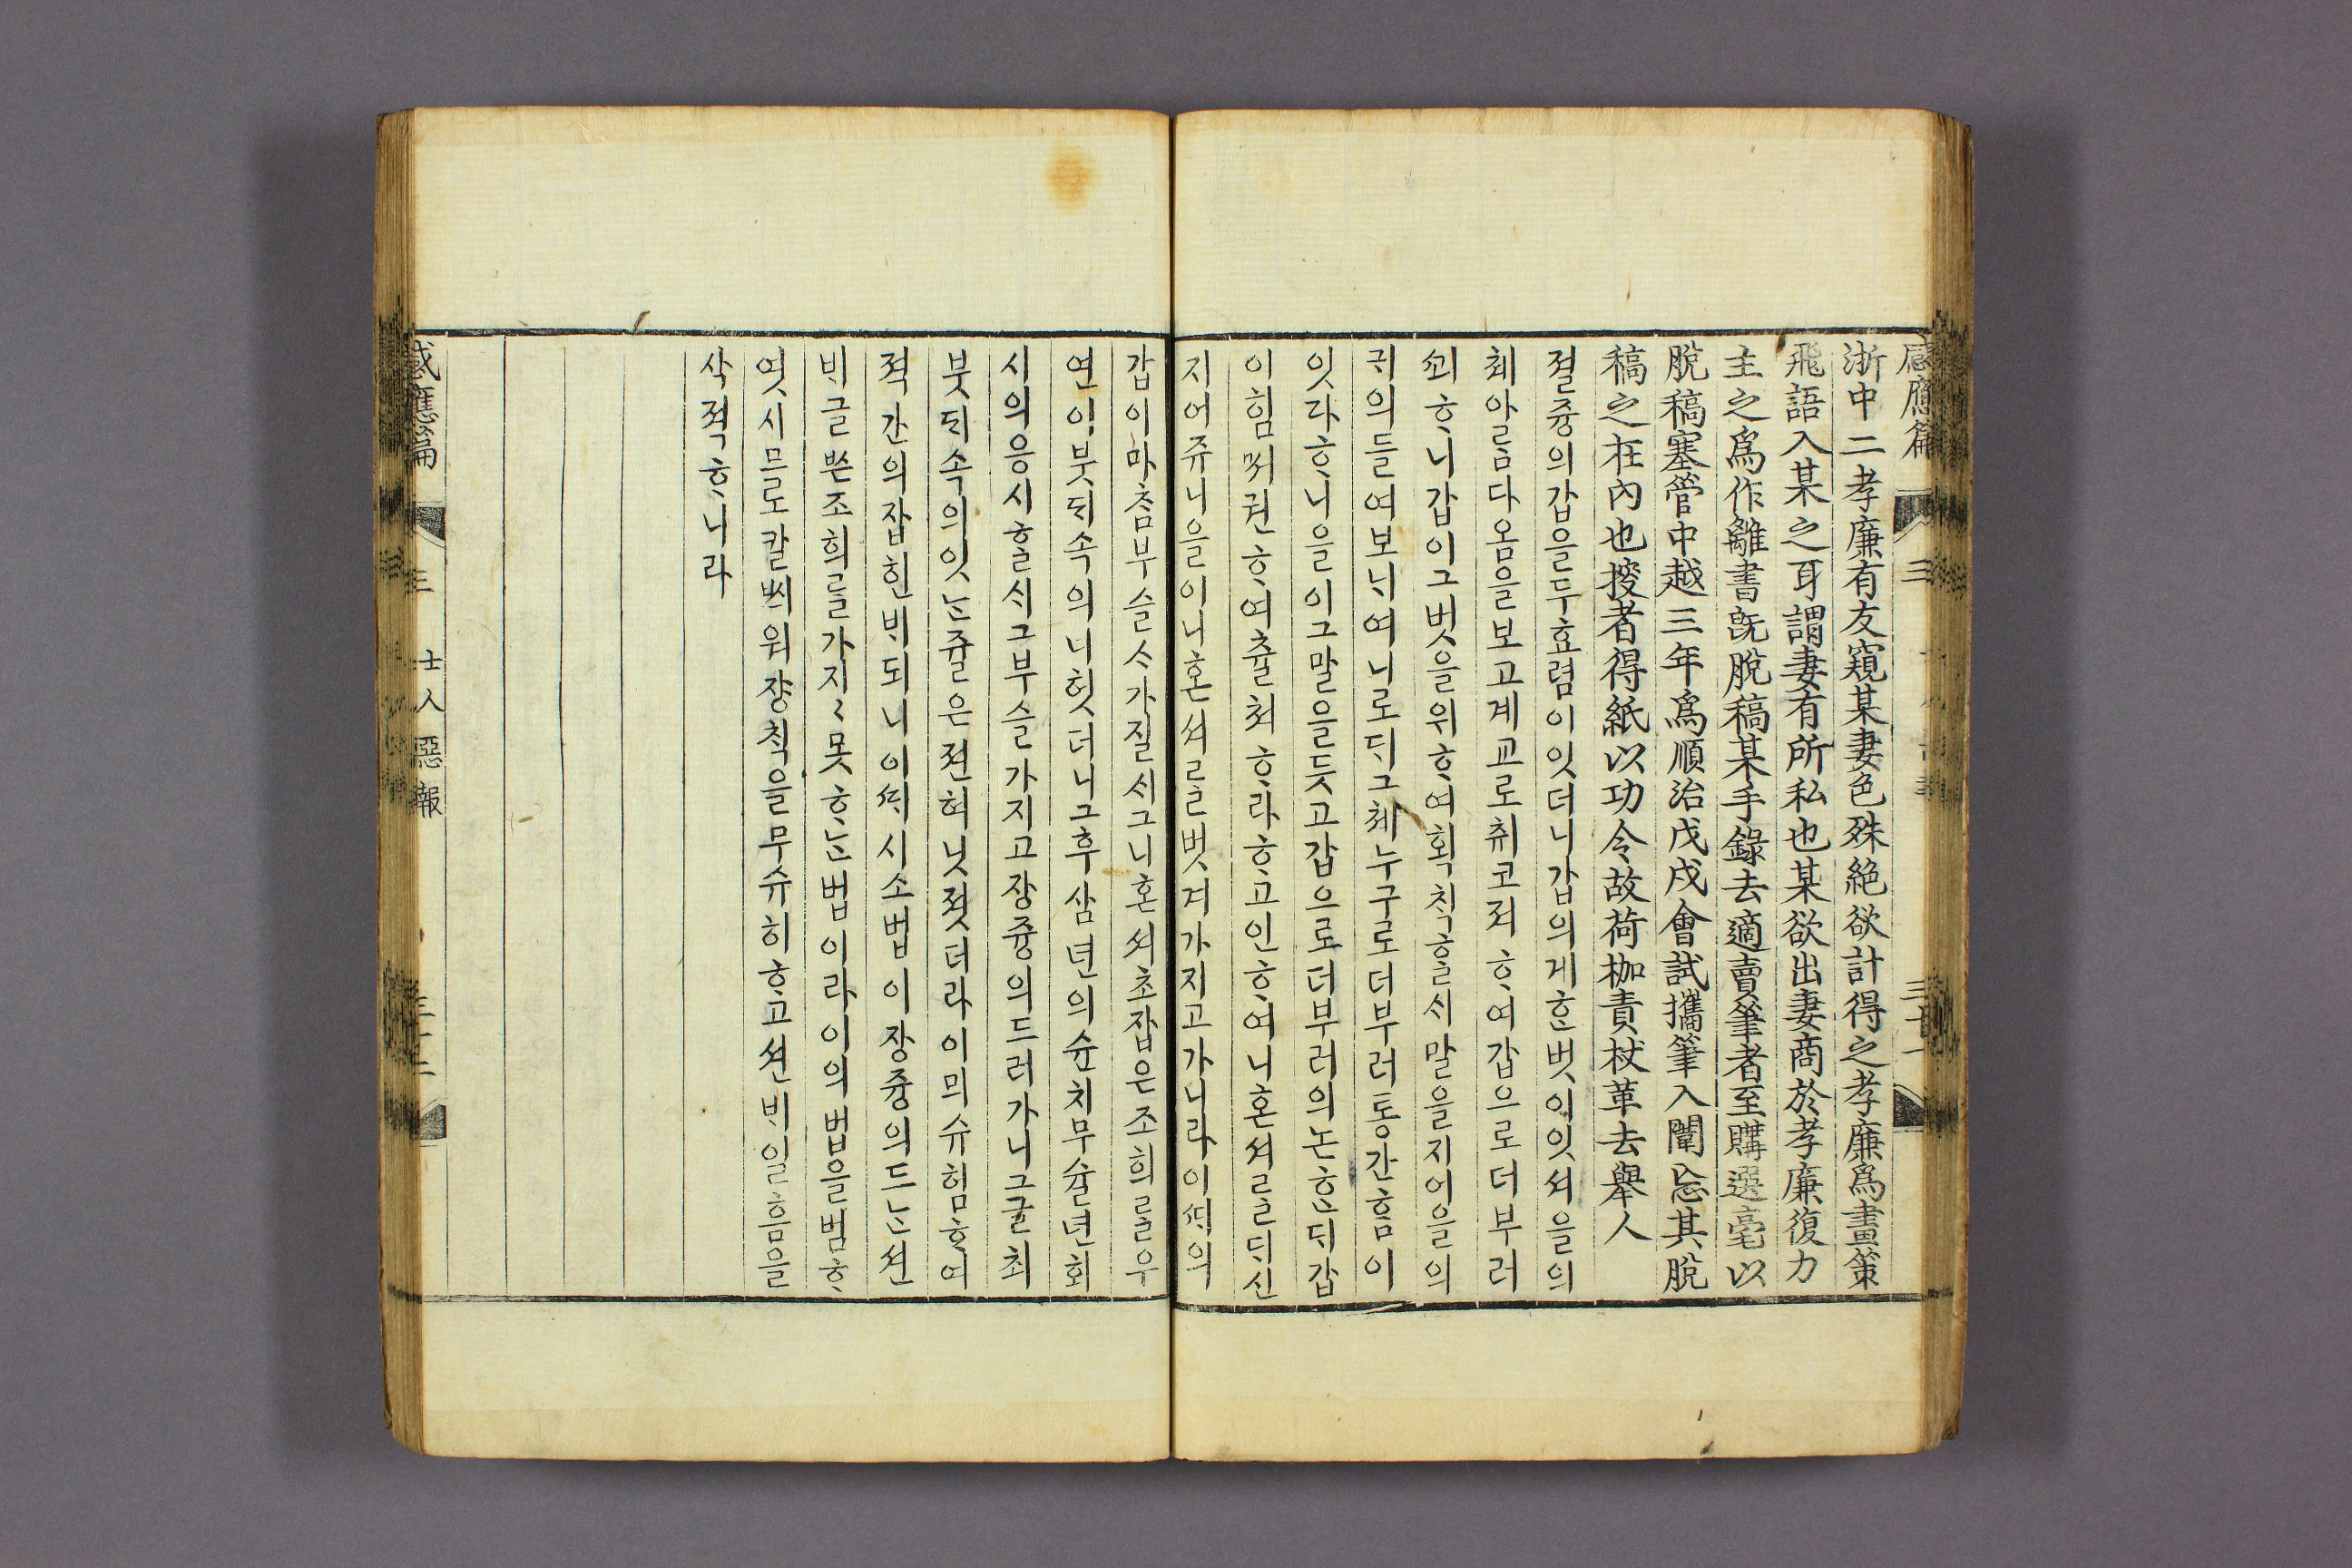 感應篇 三
浙中二孝廉有友窺某妻色殊絶欲計得之孝廉爲畫策
飛語入某之耳謂妻有所私也某欲出妻商於孝廉復力
主之爲作離書旣脫稿某手錄去適賣筆者至購選毫以
脫稿塞管中越三年爲順治戊戌會試攜筆入闈忘其脫
稿之在內也搜者得紙以功令故荷枷責杖革去擧人
졀즁의갑을두효렴이잇더니갑의게ᄒᆞᆫ벗이잇셔을의
쳬아ᄅᆞᆷ다옴을보고계교로취코져ᄒᆞ여갑으로더부러
ᄭᅬᄒᆞ니갑이그벗을위ᄒᆞ여획칙ᄒᆞᆯᄉᆡ말을지어을의
귀의들여보ᄂᆡ여니로ᄃᆡ그쳬누구로더부러통간ᄒᆞᆷ이
잇다ᄒᆞ니을이그말을듯고갑으로더부러의논ᄒᆞᆫᄃᆡ갑
이힘ᄡᅥ권ᄒᆞ여츌쳐ᄒᆞ라ᄒᆞ고인ᄒᆞ여니혼셔ᄅᆞᆯᄃᆡ신
지어쥬니을이니혼셔ᄅᆞᆯ벗겨가지고가니라이ᄯᅢ의
갑이마ᄎᆞᆷ부슬ᄉᆞ가질ᄉᆡ그니혼셔초잡은조희ᄅᆞᆯ우
연이붓ᄃᆡ속의니헛더니그후삼년의슌치무슐년회
시의응시ᄒᆞᆯᄉᆡ그부슬가지고쟝즁의드러가니그글최
붓ᄃᆡ속의잇ᄂᆞᆫ쥴은젼혀닛졋더라이믜슈험ᄒᆞ여
젹간의잡힌ᄇᆡ되니이ᄯᅢ시소법이쟝즁의드ᄂᆞᆫ션
ᄇᆡ글ᄡᅳᆫ조희ᄅᆞᆯ가지〻못ᄒᆞᄂᆞᆫ법이라이의법을범ᄒᆞ
엿시므로칼ᄡᅴ워쟝칙을무슈히ᄒᆞ고션ᄇᆡ일홈을
삭젹ᄒᆞ니라
感應篇 三 士人惡報 三十二